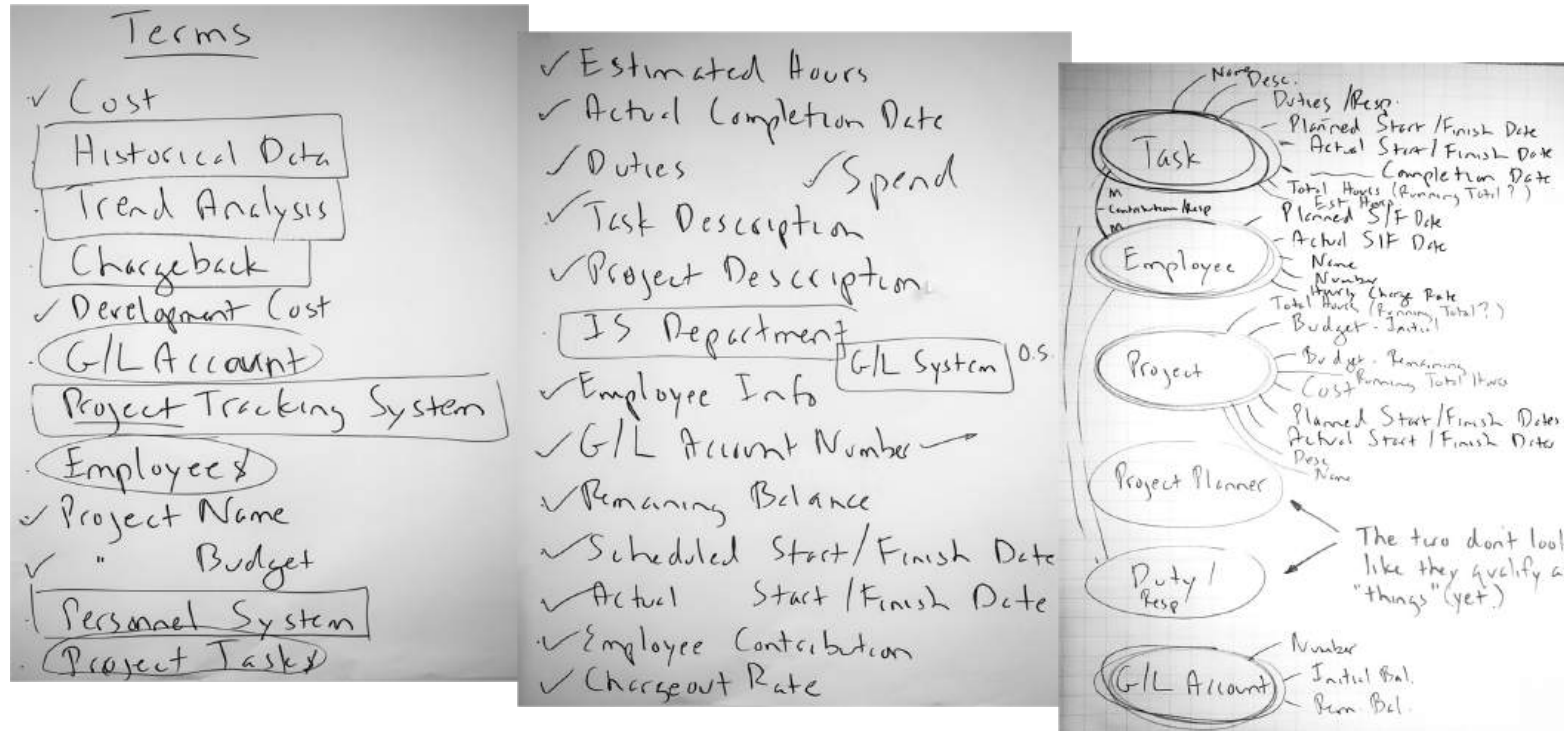 Terms
Cost
Historical Data
Trend Analysis
Chargeback
Development Cost
G/L Account
Project Tracking System
Employees
Project Name
" Budget
Personnel System
Project Tasks
Estimated Hours
Actual Completion Date
Duties
Spend
Task Description
Project Description
IS Department
G/L System O.S.
Employee Info
G/L Account Number
Remaining Balance
Scheduled Start/Finish Date
Actual Start/Finish Date
Employee Contribution
Chargeout Rate
Name
Desc.
Duties/Resp.
Planned Start/Finish Date
Actual Start/Finish Date
Completion Date
Total Hours (Running Total?)
Est Hours
Task
M
Contribution/Resp
M
Planned S/F Date
Actual S/F Date
Name
Number
Hourly Charge Rate
Employee
Total Hours (Running Total?)
Budget - Initial
Budget - Remaining
Running Total Hours
Cost
Planned Start/Finish Dates
Actual Start/Finish Dates
Desc
Name
Project
Project Planner
The two don't look
like they qualify a
"things" (yet)
Duty/
Resp
Number
Initial Bal.
Rem. Bal.
G/L Account